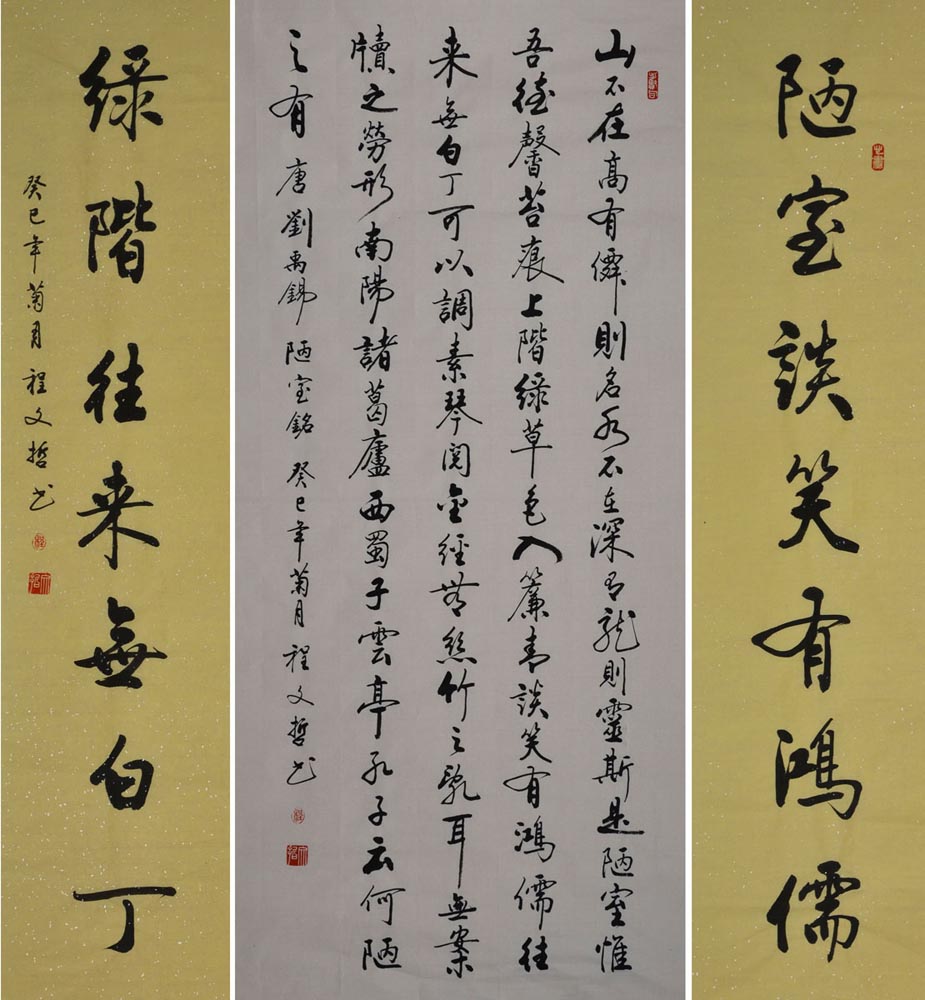 陋室談笑有鴻儒
山不在高有僊則名水不在深有龍則靈斯是陋室惟
吾德馨苔痕上階綠草色入簾青談笑有鴻儒往
来無白丁可以調素琴閱金經無絲竹之亂耳無案
牘之勞形南陽諸葛廬西蜀子雲亭孔子云何陋
之有 唐劉禹錫陋室銘 癸巳年菊月程文哲书
綠階往来無白丁
癸巳年菊月程文哲书